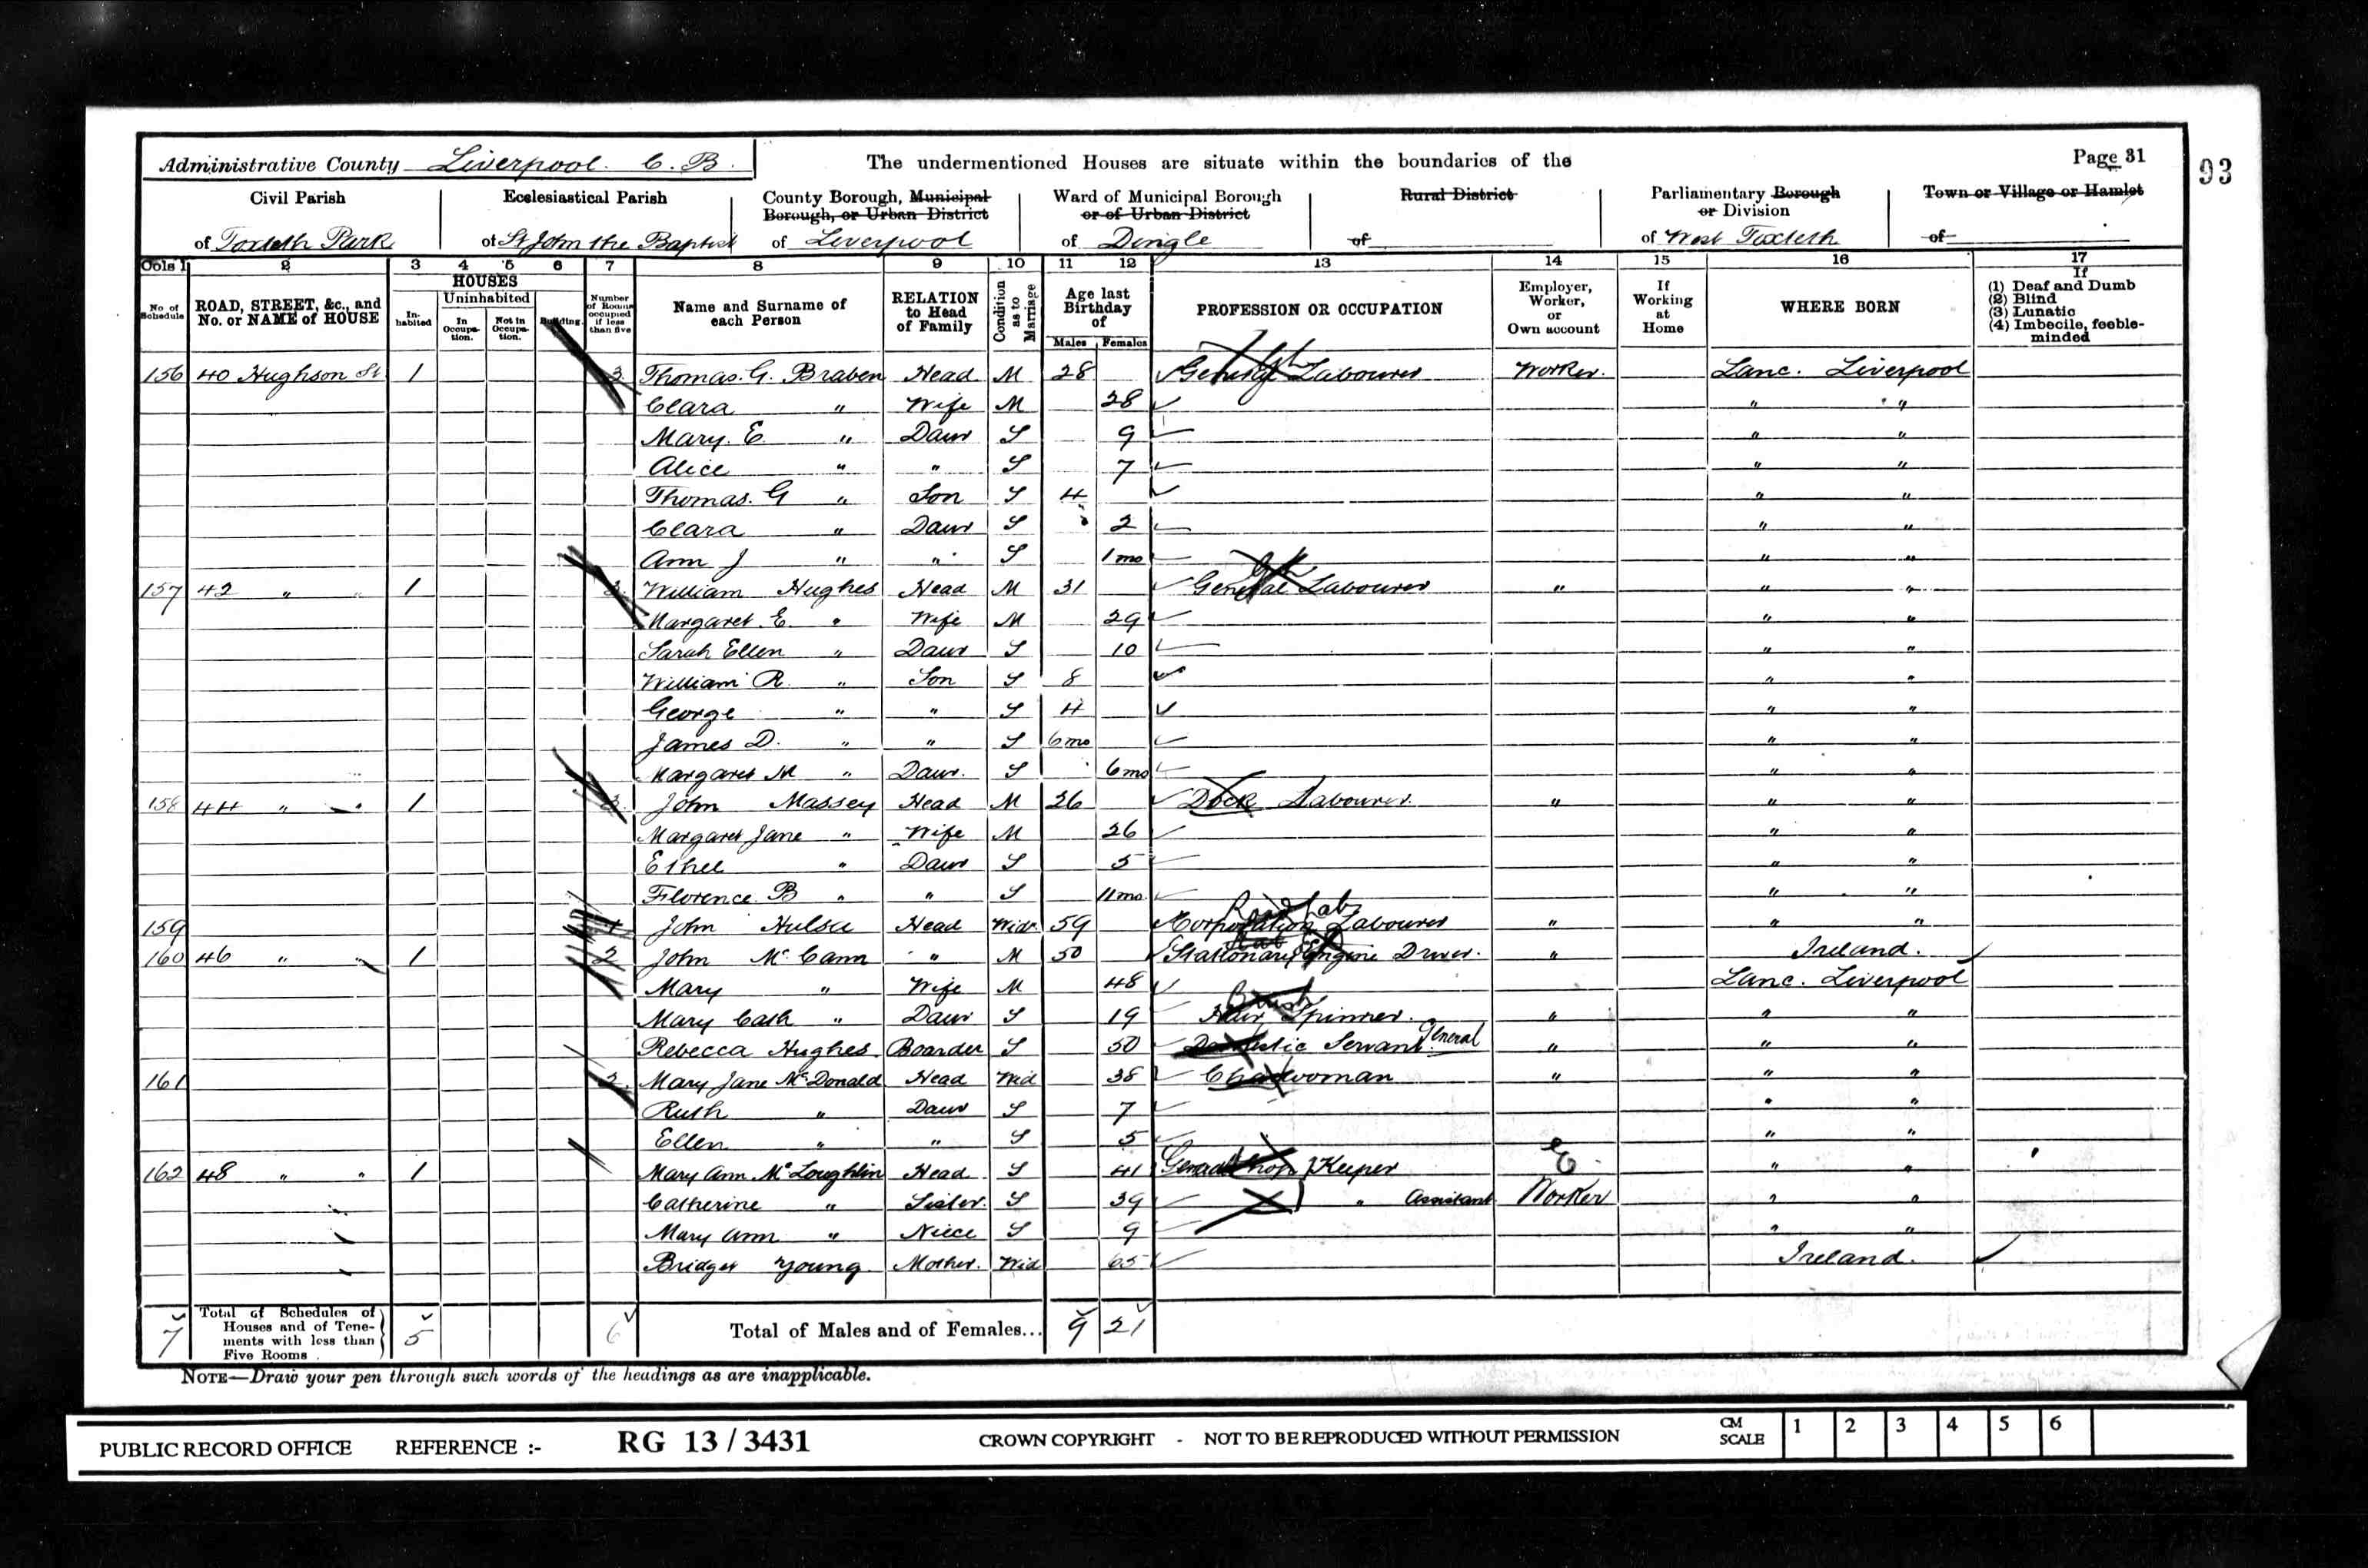 Administrative County Liverpool. C. B. The undermentioned Houses are situate within the boundaries of the Page 31
93
Civil Parish of Toxteth Park
Ecclesiastical Parish of St John the Baptist
County Borough, Municipal Borough, or Urban District of Liverpool
Ward of Municipal Borough or of Urban District of Dingle
Rural District of
Parliamentary Borough or Division of West Toxteth
Town or Village or Hamlet of
Cols 1 2 3 4 5 6 7 8 9 10 11 12 13 14 15 16 17
No. of Schedule
ROAD, STREET, &c., and No. or NAME of HOUSE
HOUSES
Inhabited
Uninhabited
In Occupation.
Not in Occupation.
Building.
Number of Rooms occupied if less than five
Name and Surname of each Person
RELATION to Head of Family
Condition as to Marriage
Age last Birthday of
Males Females
PROFESSION OR OCCUPATION
Employer, Worker, or Own account
If Working at Home
WHERE BORN
If
(1) Deaf and Dumb
(2) Blind
(3) Lunatic
(4) Imbecile, feeble-minded
156 40 Hughson St 1 3 Thomas. G. Braben Head M 28 General Labourer Worker. Lanc. Liverpool
Clara " Wife M 28 " "
Mary. E " Daur S 9 " "
Alice " " S 7 " "
Thomas. G " Son S 4 " "
Clara " Daur S 2 " "
Ann J " " S 1mo " "
157 42 " " 1 3 William Hughes Head M 31 General Labourer " " "
Margaret. E. " Wife M 29 " "
Sarah Ellen " Daur S 10 " "
William R. " Son S 8 " "
George " " S 4 " "
James D. " " S 6mo " "
Margaret M " Daur. S 6mo " "
158 44 " " 1 3 John Massey Head M 26 Dock Labourer. " " "
Margaret Jane " Wife M 26 " "
Ethel " Daur S 5 " "
Florence. B " " S 11mo " "
Road Lab
159 1 John Head Widr 59 Corporation Labourer " " "
160 46 " " 1 2 John McCann " M 50 Stationary Engine Driver. " Ireland.
Mary " Wife M 48 Lanc. Liverpool
Brush
Mary Cath " Daur S 19 Hair Spinner. " " "
Rebecca Hughes Boarder S 50 Domestic Servant General " " "
161 2 Mary Jane McDonald Head Wid 38 Charwoman " " "
Ruth " Daur S 7 " "
Ellen " " S 5 " "
162 48 " " 1 Mary Ann McLoughlin Head S 41 Shop Keeper E " "
Catherine " Sister. S 39 " Assistant Worker " "
Mary Ann " Niece S 9 " "
Bridget Young Mother. Wid 65 Ireland.
7 Total of Schedules of Houses and of Tenements with less than Five Rooms 5 6 Total of Males and of Females... 9 21
NOTE—Draw your pen through such words of the headings as are inapplicable.
PUBLIC RECORD OFFICE REFERENCE :- RG 13 / 3431 CROWN COPYRIGHT - NOT TO BE REPRODUCED WITHOUT PERMISSION CM SCALE 1 2 3 4 5 6